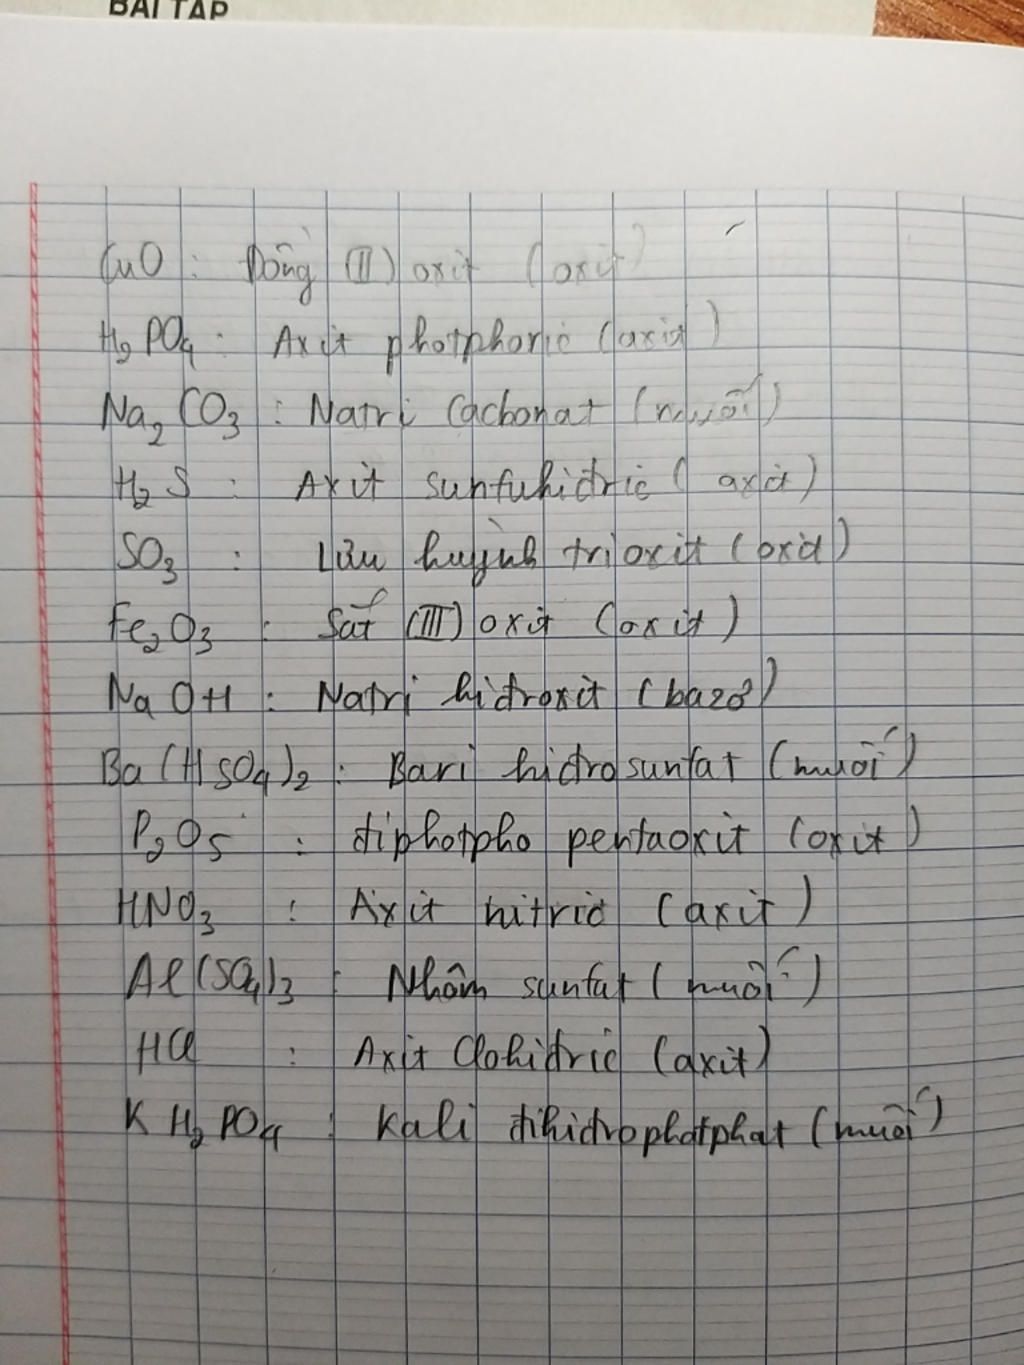 BÀI TẬP
CuO : Đồng (II) oxit (oxit)
H2PO4 : Axit photphoric (axit)
Na2CO3 : Natri Cacbonat (muối)
H2S : Axit sunfuhidric (axit)
SO3 : Lưu huỳnh trioxit (oxit)
Fe2O3 : Sắt (III) oxit (oxit)
NaOH : Natri hidroxit (bazơ)
Ba(HSO4)2 : Bari hidrosunfat (muối)
P2O5 : điphotpho pentaoxit (oxit)
HNO3 : Axit nitric (axit)
Al(SO4)3 : Nhôm sunfat (muối)
HCl : Axit Clohiđric (axit)
KH2PO4 : Kali đihiđrophotphat (muối)